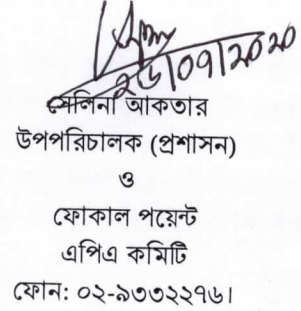 ২৬/০৭/২০২০
সেলিনা আকতার
উপপরিচালক (প্রশাসন)
ও
ফোকাল পয়েন্ট
এপিএ কমিটি
ফোন: ০২-৯৩৩২২৭৬।